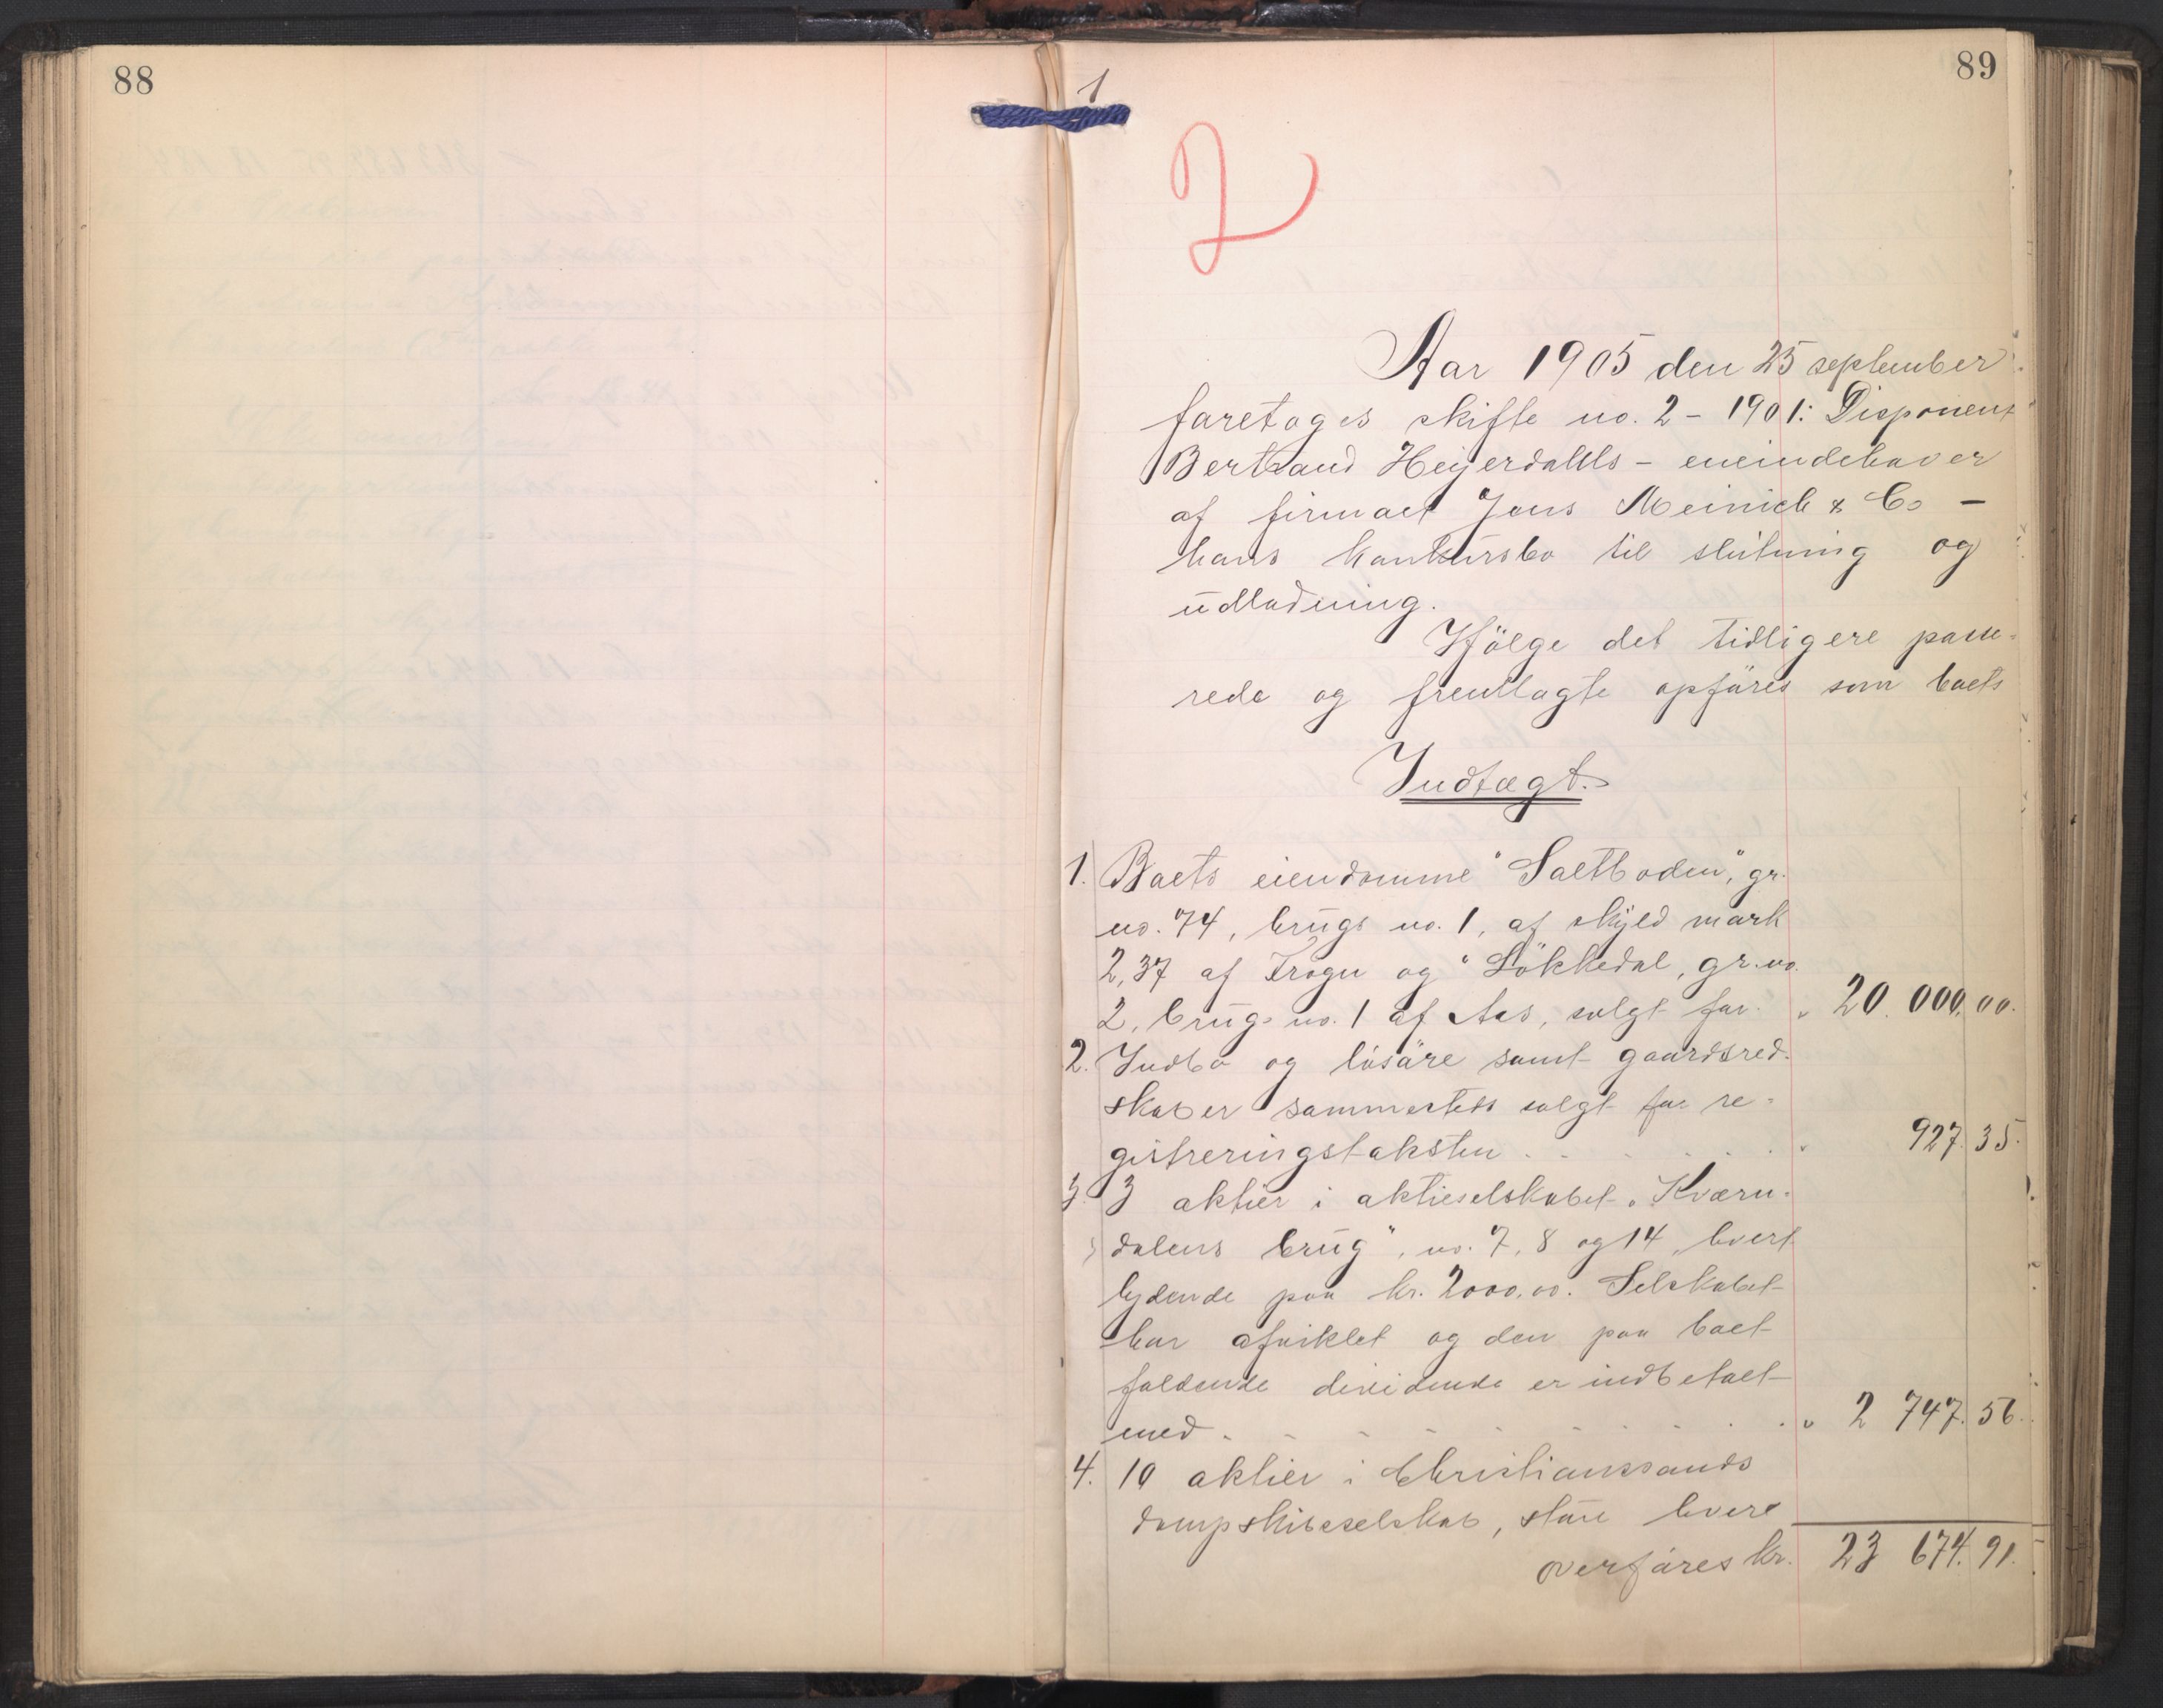 88
89
1
2
Aar 1905 den 25 september
foretoges skifte no. 2 - 1901: Disponent
Bertrand Heyerdahls - eneindehaver
af firmaet Jens Meinich & Co -
hans konkursbo til slutning og
udlodning.
Ifölge det tidligere passe-
rede og fremlagte opföres som boets
Indtægt.
1. Boets eiendomme "Saltboden", gr.
no. 74, brugs no. 1, af skyld mark
2,37 af Frogn og "Lökkedal, gr. no.
2, brugs no. 1 af Aas, solgt for " 20 000,00.
2. Indbo og lösöre samt gaardsred-
skaber sammesteds solgt for re-
gistreringstaksten . . . . . . " 927.35.
3. 3 aktier i aktieselskabet "Kværn-
dalens brug", no. 7, 8 og 14, hver
lydende paa kr. 2000,00. Selskabet
har afviklet og den paa boet
faldende dividende er indbetalt
med . . . . . . . . . " 2 747.56.
4. 10 aktier i Christianssands
dampskibsselskab, store hver
overföres kr. 23 674.91.